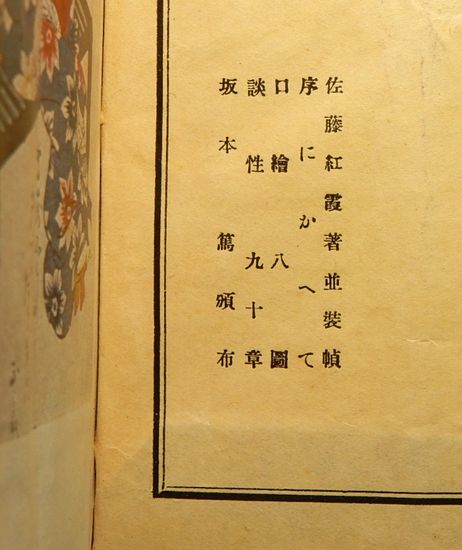 佐藤紅霞著並装幀
序にかへて
口繪八圖
談性九十章
坂本篤頒布